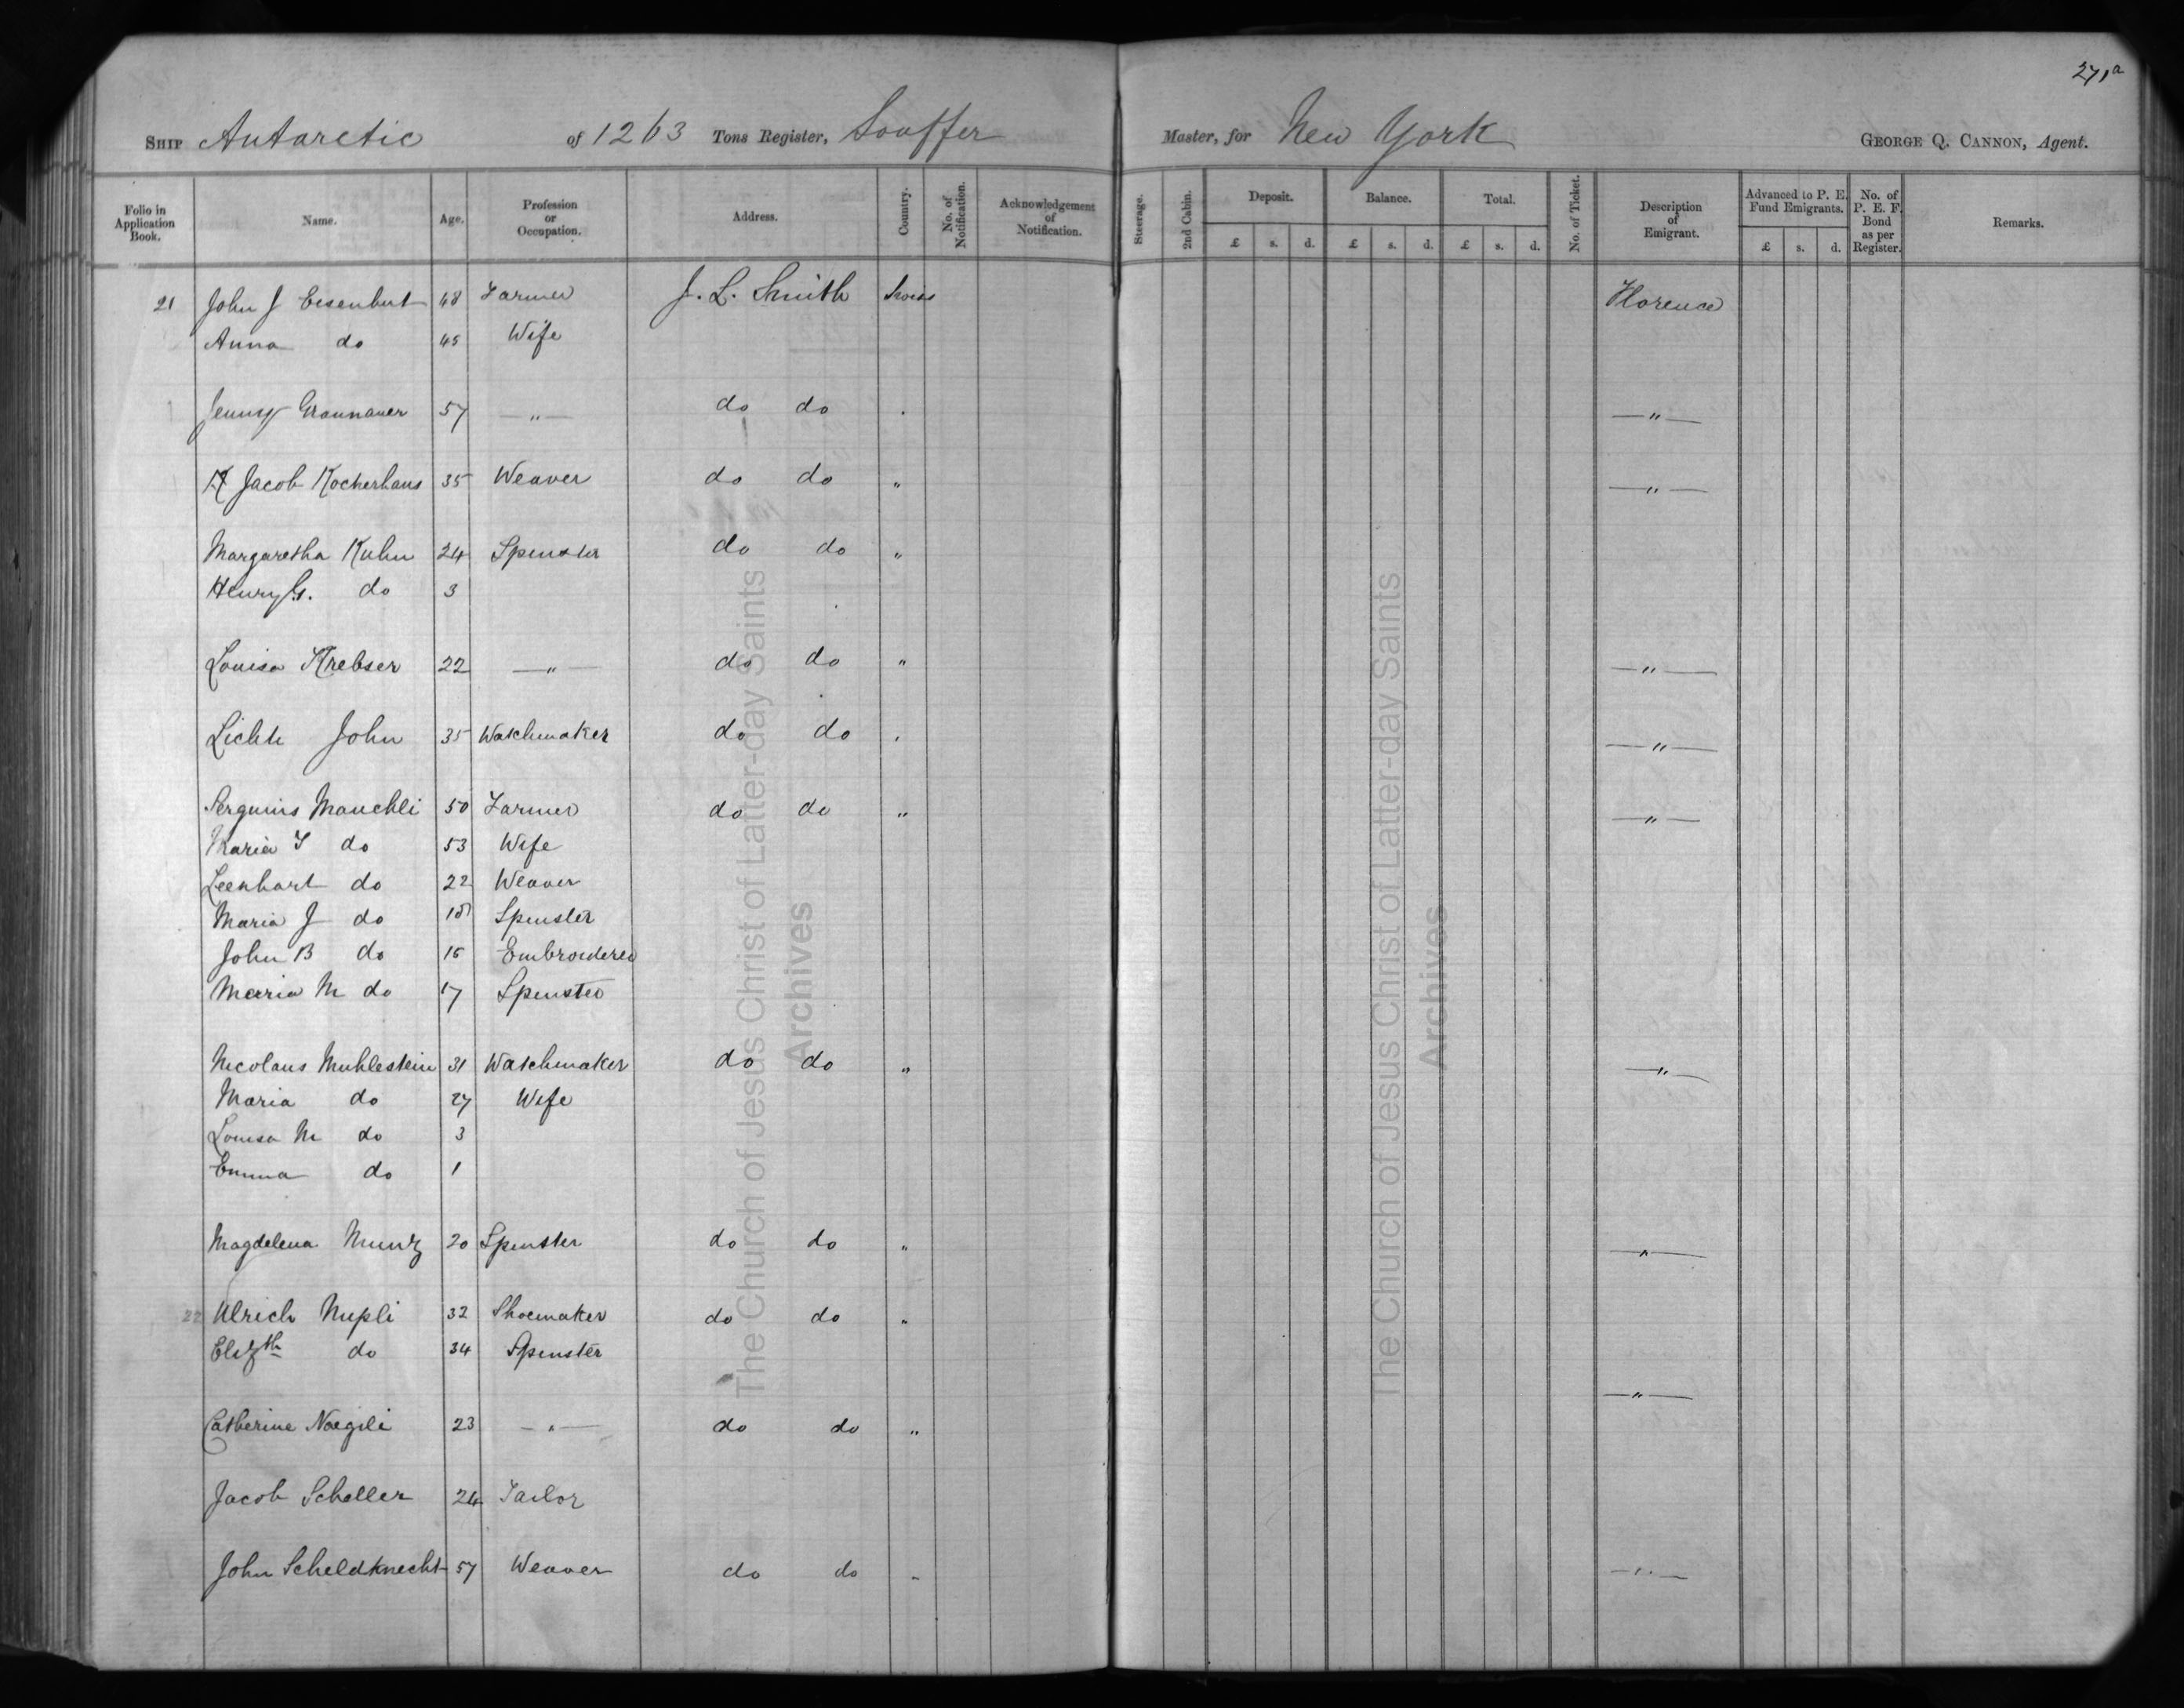 271a
SHIP Antarctic of 1263 Tons Register, Souffer Master, for New York GEORGE Q. CANNON, Agent.
Folio in Application Book. Name. Age. Profession or Occupation. Address. Country. No. of Notification. Acknowledgement of Notification. Steerage. 2nd Cabin. Deposit. £ s. d. Balance. £ s. d. Total. £ s. d. No. of Ticket. Description of Emigrant. Advanced to P. E. Fund Emigrants. £ s. d. No. of P. E. F. Bond as per Register. Remarks.
21 John J Eisenhut 48 Farmer J. L. Smith Swiss Florence
Anna do 45 Wife
Jenny Graunauer 57 —"— do do . —"—
Jacob Kocherhans 35 Weaver do do " —"—
Margaretha Kuhn 24 Spenster do do "
Henry G. do 3
Louisa Krebser 22 —"— do do " —"—
Lichti John 35 Watchmaker do do " —"—
Serguins Mauchli 50 Farmer do do " —"—
Maria do 53 Wife
Leenhart do 22 Weaver
Maria J do 18 Spenster
John B do 15 Embroiderer
Maria M do 17 Spenster
Nicolaus Muhlestein 31 Watchmaker do do " —"—
Maria do 27 Wife
Louisa M do 3
Emma do 1
Magdelena Munz 20 Spenster do do " —"—
22 Ulrich Nupli 32 Shoemaker do do "
Elizth do 34 Spenster
—"—
Catherine Naegeli 23 —"— do do "
Jacob Scheller 24 Tailor
John Scheldknecht 57 Weaver do do " —"—
The Church of Jesus Christ of Latter-day Saints
Archives
The Church of Jesus Christ of Latter-day Saints
Archives